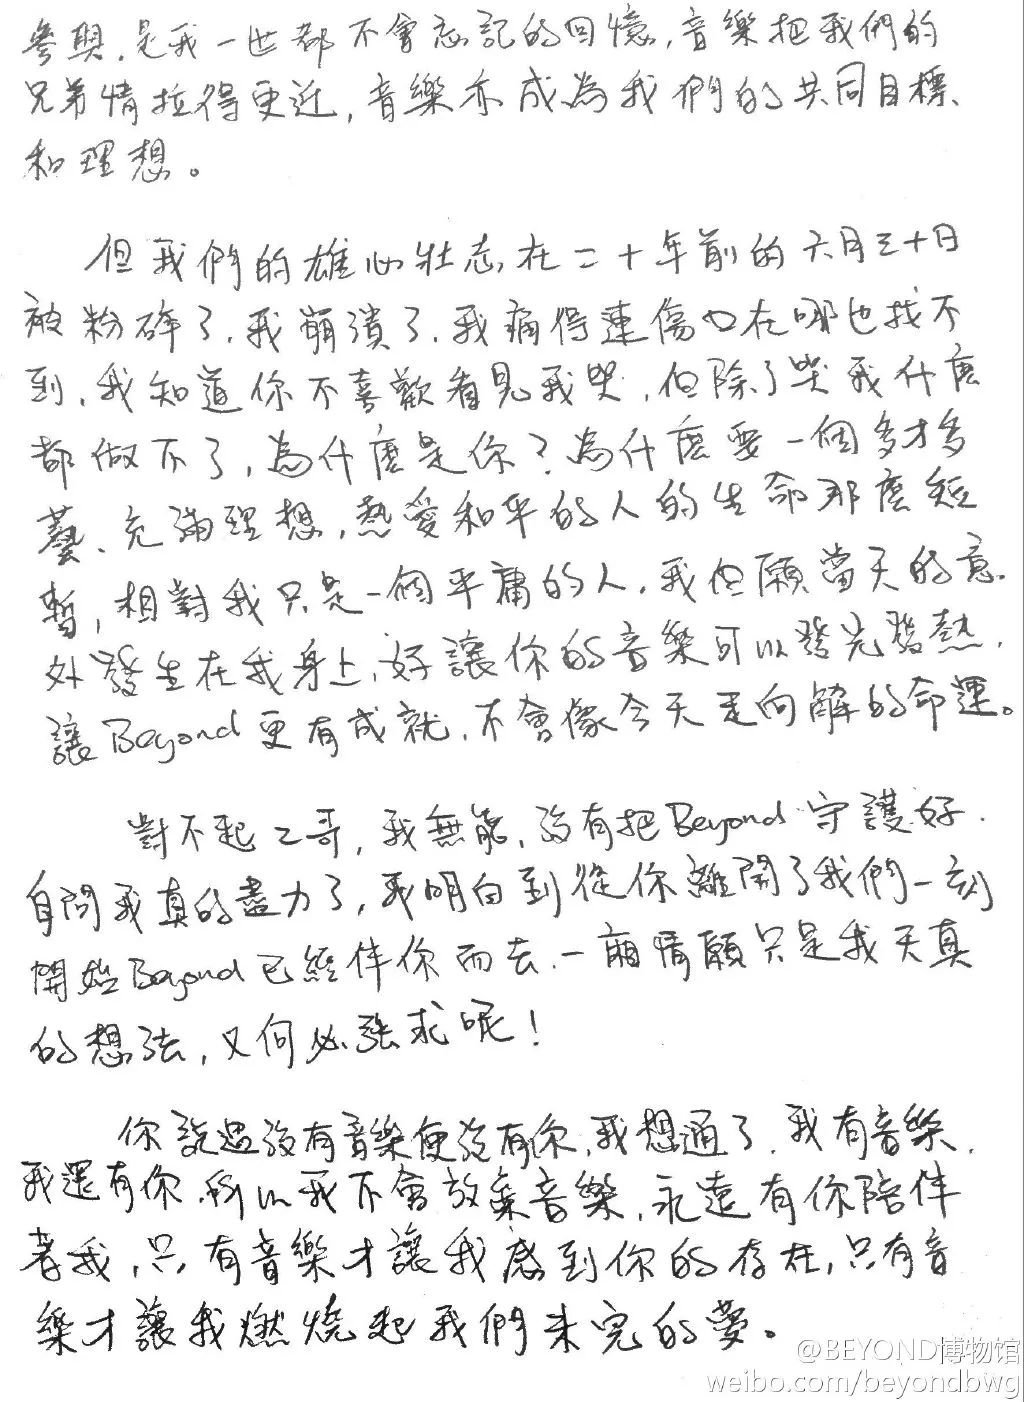 參與,是我一世都不會忘記的回憶,音樂把我們的
兄弟情拉得更近,音樂亦成為我們的共同目標、
和理想。
但我們的雄心壯志,在二十年前的六月三十日
被粉碎了,我崩潰了,我痛得連傷口在哪也找不
到,我知道你不喜歡看見我哭,但除了哭我什麽
都做不了,為什麽是你?為什麽要一個多才多
藝、充滿理想,熱愛和平的人的生命那麽短
暫,相對我只是一個平庸的人,我但願當天的意
外發生在我身上,好讓你的音樂可以發光發熱,
讓Beyond更有成就,不會像今天走向解的命運。
對不起二哥,我無能,沒有把Beyond守護好,
自問我真的盡力了,我明白到從你離開了我們一刻
開始Beyond已經伴你而去,一廂情願只是我天真
的想法,又何必強求呢!
你說過沒有音樂便沒有你,我想通了,我有音樂,
我還有你,所以我不會放棄音樂,永遠有你陪伴
著我,只有音樂才讓我感到你的存在,只有音
樂才讓我燃燒起我們未完的夢。
@BEYOND博物馆
weibo.com/beyondbwg